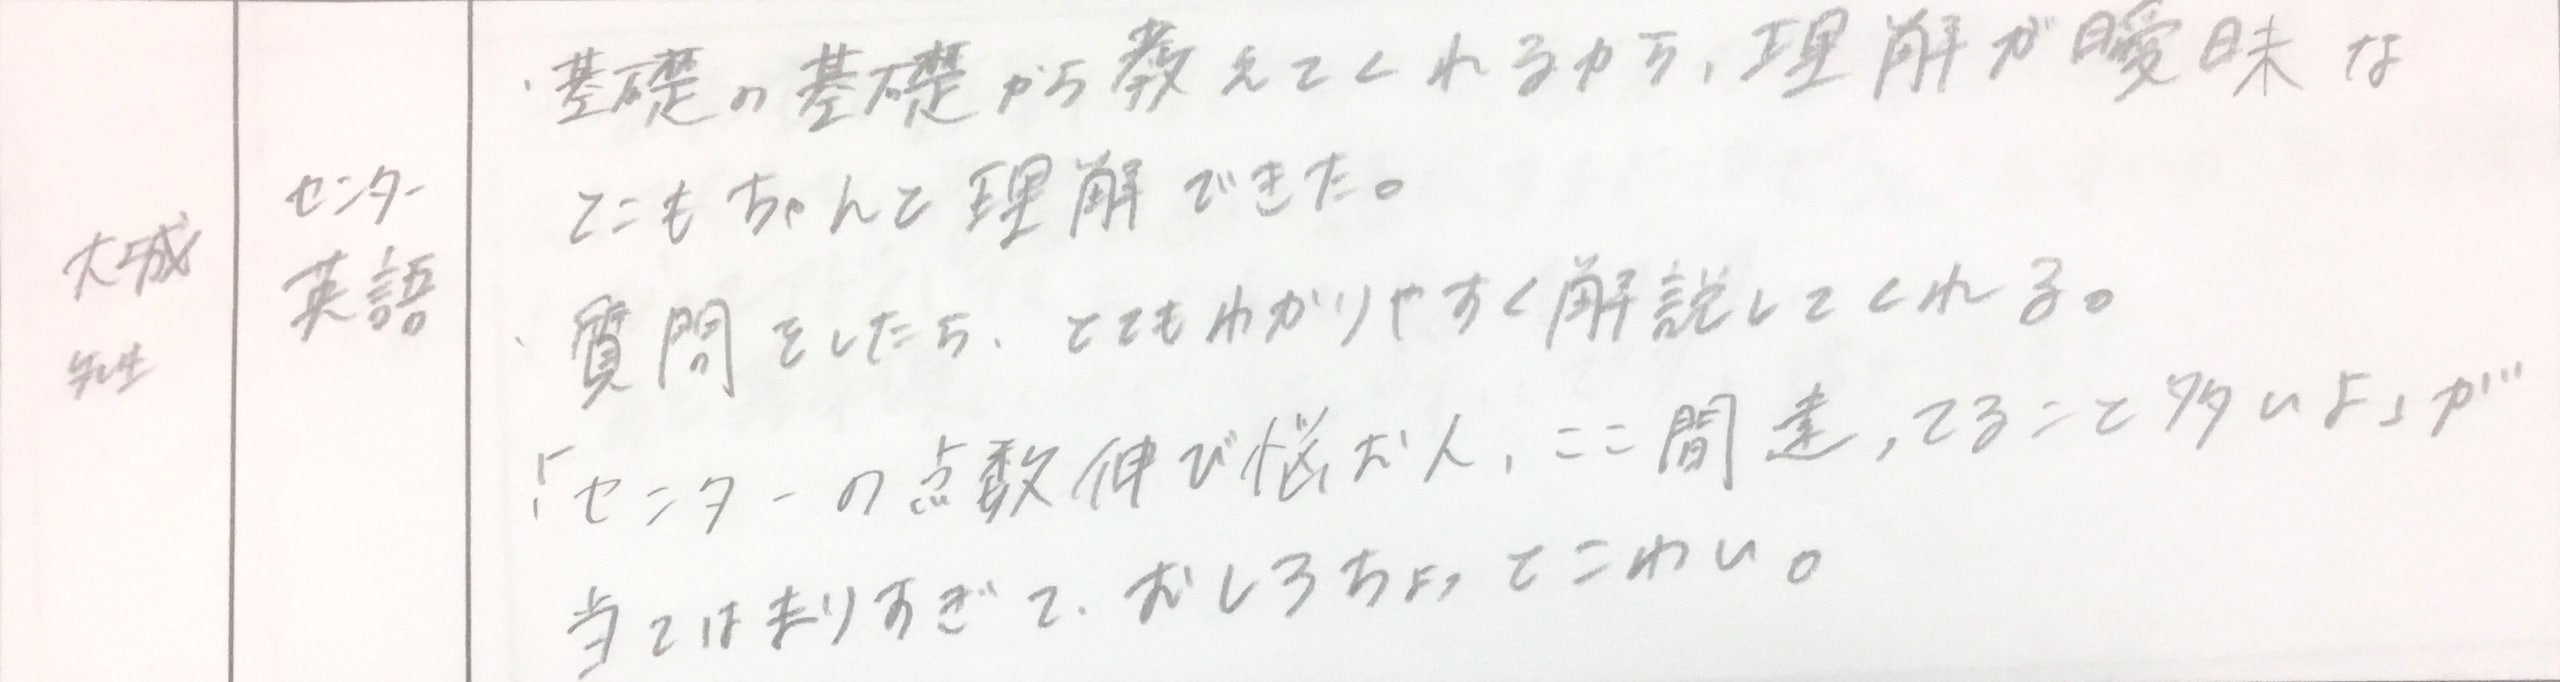 大城
先生
センター
英語
・基礎の基礎から教えてくれるから、理解が曖昧な
とこもちゃんと理解できた。
・質問をしたら、とてもわかりやすく解説してくれる。
・「センターの点数伸び悩む人、ここ間違ってること多いよ」が
当てはまりすぎて、むしろちょっとこわい。